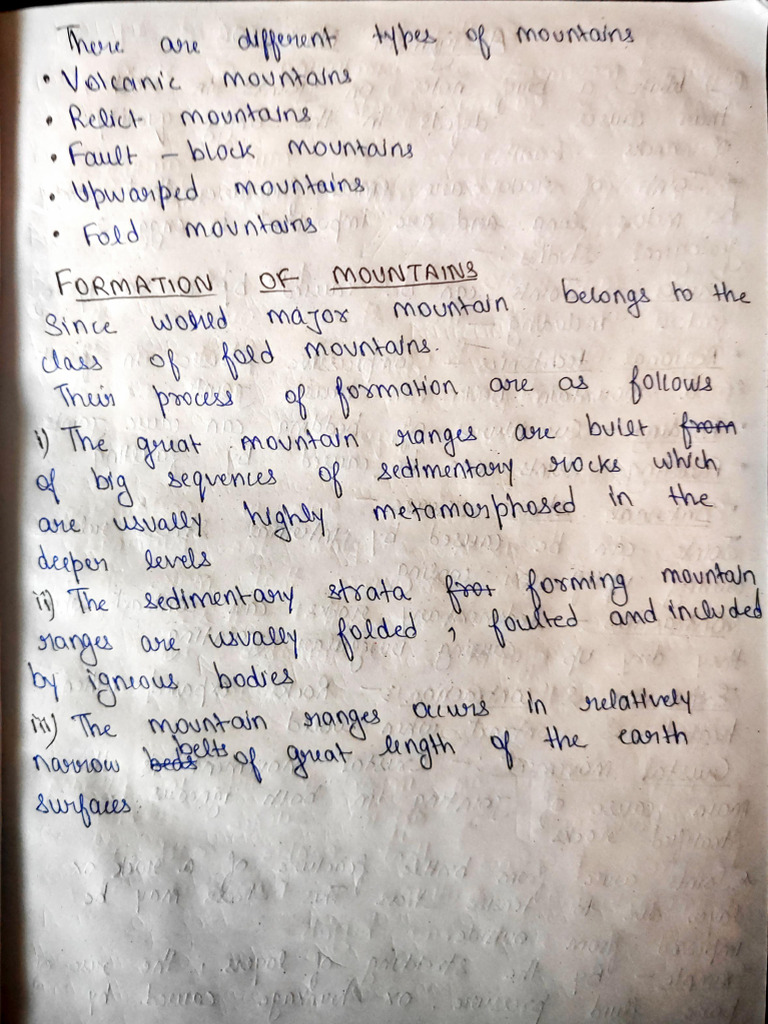 There are different types of mountains
• Volcanic mountains
• Relict mountains
• Fault - block mountains
• Upwarped mountains
• Fold mountains
FORMATION OF MOUNTAINS
Since world major mountain belongs to the
class of fold mountains.
Their process of formation are as follows
i) The great mountain ranges are built from
of big sequences of sedimentary rocks which
are usually highly metamorphosed in the
deeper levels
ii) The sedimentary strata forming mountain
ranges are usually folded, foulted and included
by igneous bodies
iii) The mountain ranges occurs in relatively
narrow beds belts of great length of the earth
surfaces.